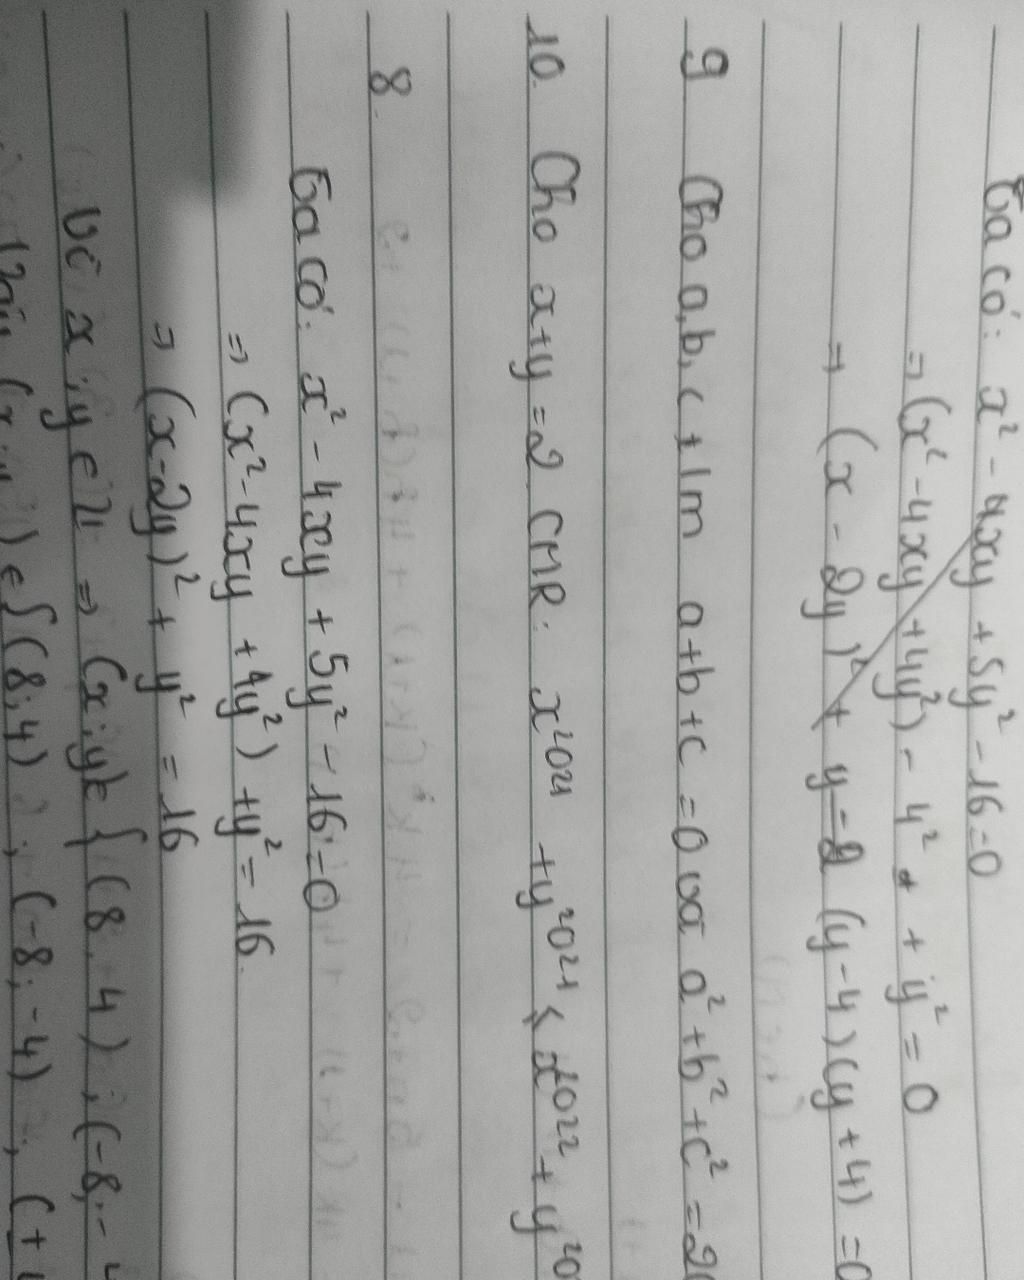 Ta có: x² - 4xy + 5y² - 16 = 0
⇒ (x² - 4xy + 4y²) - 4² + y² = 0
⇒ (x - 2y)² + (y - 4)(y + 4) = 0
9 Cho a, b, c t/m a + b + c = 0 và a² + b² + c² =
10. Cho x + y = 2 CMR: x²⁰²¹ + y²⁰²¹ ≤ x²⁰²² + y
8.
Ta có: x² - 4xy + 5y² - 16 = 0
⇒ (x² - 4xy + 4y²) + y² = 16.
⇒ (x - 2y)² + y² = 16
Vì x; y ∈ Z ⇒ (x; y) ∈ { (8; 4); (-8; -
(x; y) ∈ { (8; 4); (-8; -4); (+